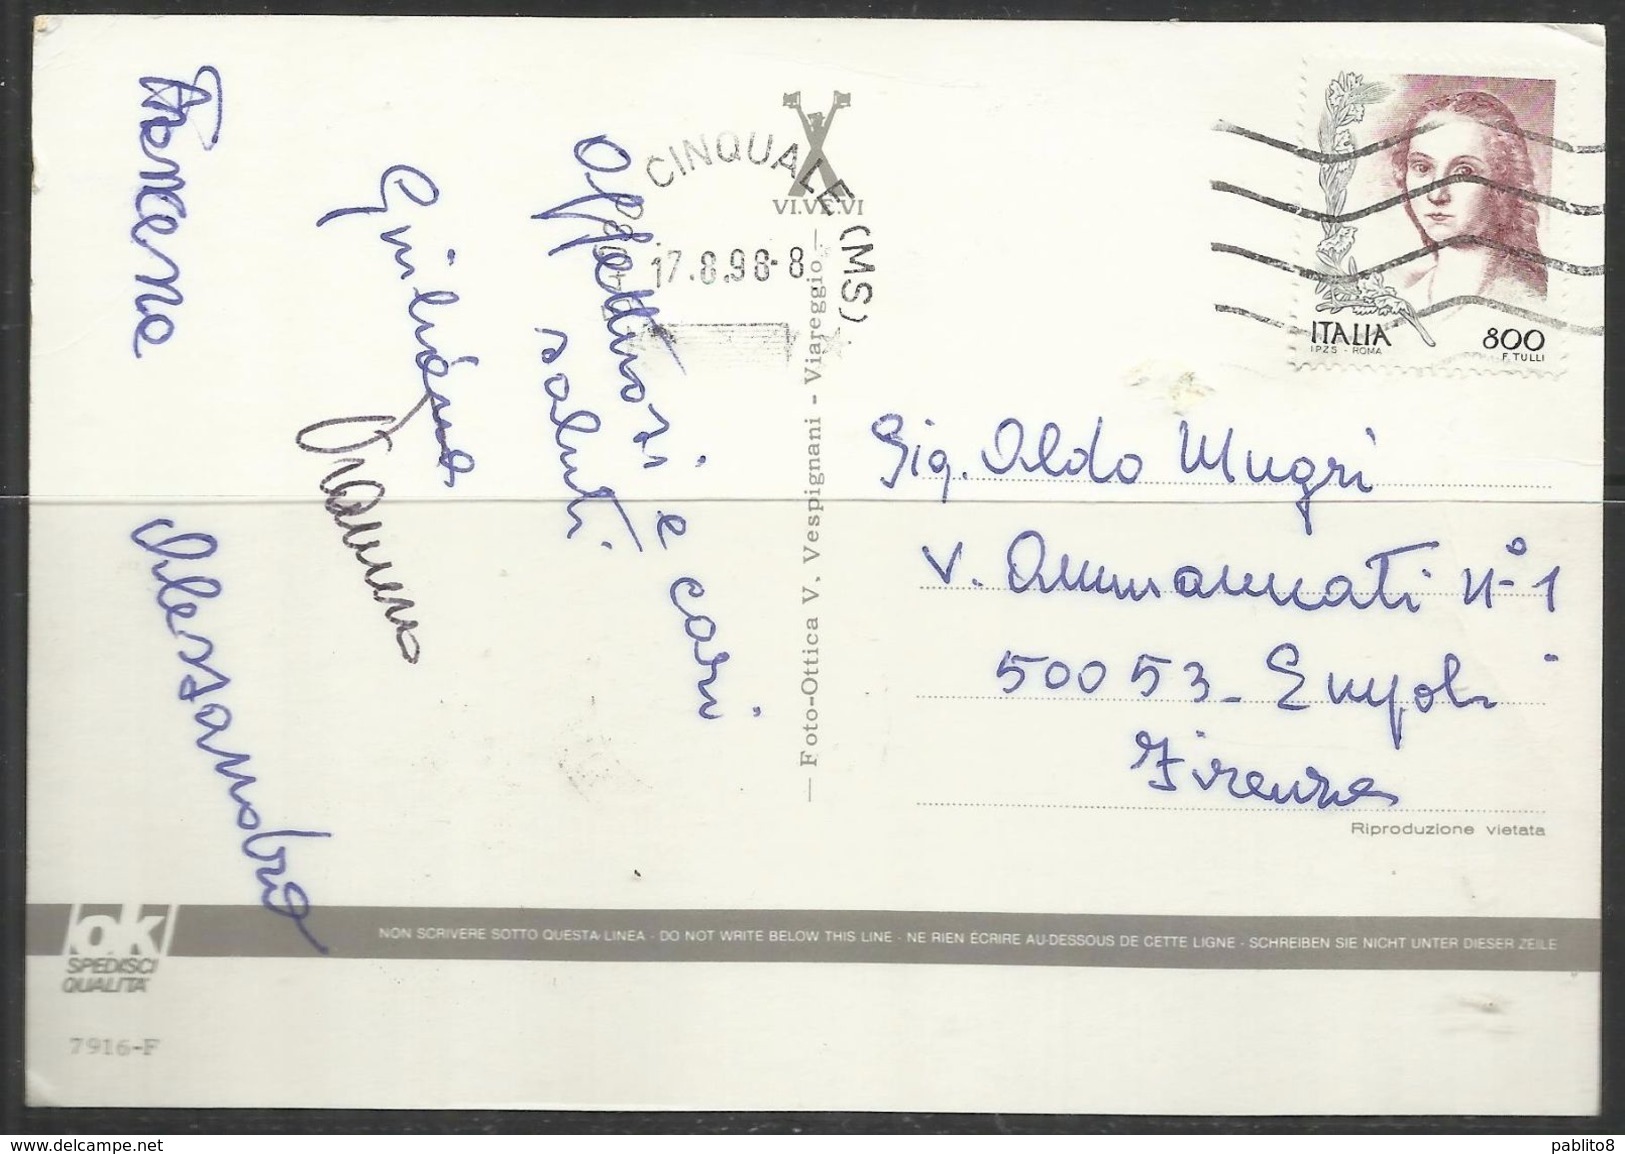 Affettuosi e cari
saluti
Giuliana
Alessandro
CINQUALE (MS)
17.8.98-8
VI.VE.VI
— Foto-Ottica V. Vespignani - Viareggio —
ITALIA
800
I.P.Z.S. - ROMA
F. TULLI
Sig. Aldo Mugri
V. Ammannati n° 1
50053 - Empoli
Firenze
Riproduzione vietata
ok
SPEDISCI
QUALITA'
NON SCRIVERE SOTTO QUESTA LINEA - DO NOT WRITE BELOW THIS LINE - NE RIEN ÉCRIRE AU-DESSOUS DE CETTE LIGNE - SCHREIBEN SIE NICHT UNTER DIESER ZEILE
7916-F
www.delcampe.net
pablito8